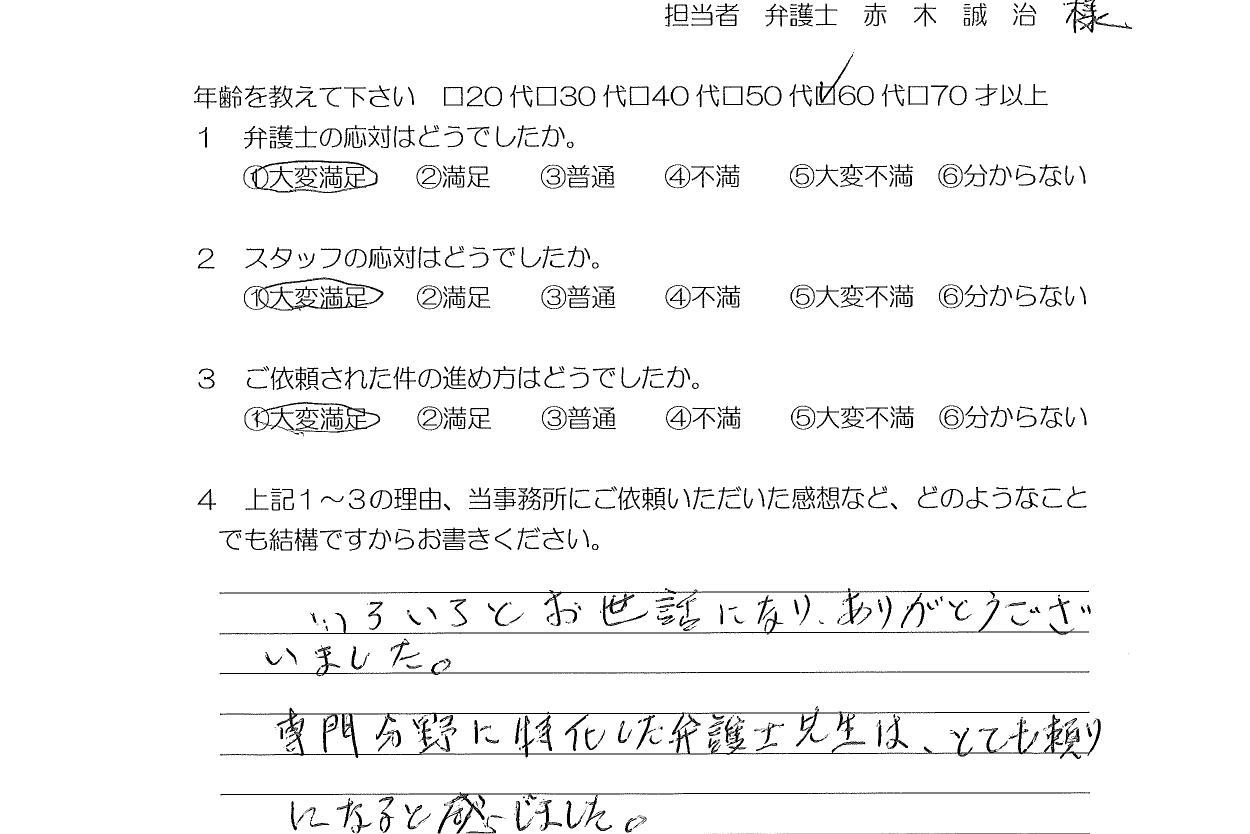 担当者　弁護士　赤　木　誠　治　様
年齢を教えて下さい　□20代□30代□40代□50代☑60代□70才以上
１　弁護士の応対はどうでしたか。
①大変満足　②満足　③普通　④不満　⑤大変不満　⑥分からない
２　スタッフの応対はどうでしたか。
①大変満足　②満足　③普通　④不満　⑤大変不満　⑥分からない
３　ご依頼された件の進め方はどうでしたか。
①大変満足　②満足　③普通　④不満　⑤大変不満　⑥分からない
４　上記１～３の理由、当事務所にご依頼いただいた感想など、どのようなこと
でも結構ですからお書きください。
いろいろとお世話になり、ありがとうござ
いました。
専門分野に特化した弁護士先生は、とても頼り
になると感じました。